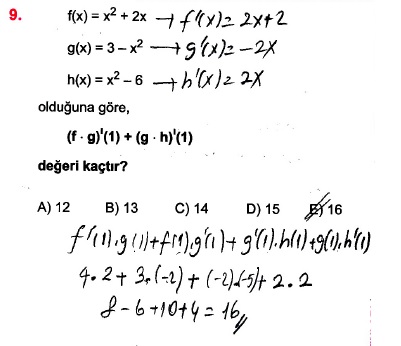 9. f(x) = x² + 2x → f'(x) = 2x+2
g(x) = 3 – x² → g'(x) = -2x
h(x) = x² – 6 → h'(x) = 2x
olduğuna göre,
(f · g)'(1) + (g · h)'(1)
değeri kaçtır?
A) 12 B) 13 C) 14 D) 15 E) 16
f'(1).g(1)+f(1).g'(1)+g'(1).h(1)+g(1).h'(1)
4.2+3.(-2)+(-2).(-5)+2.2
8-6+10+4=16